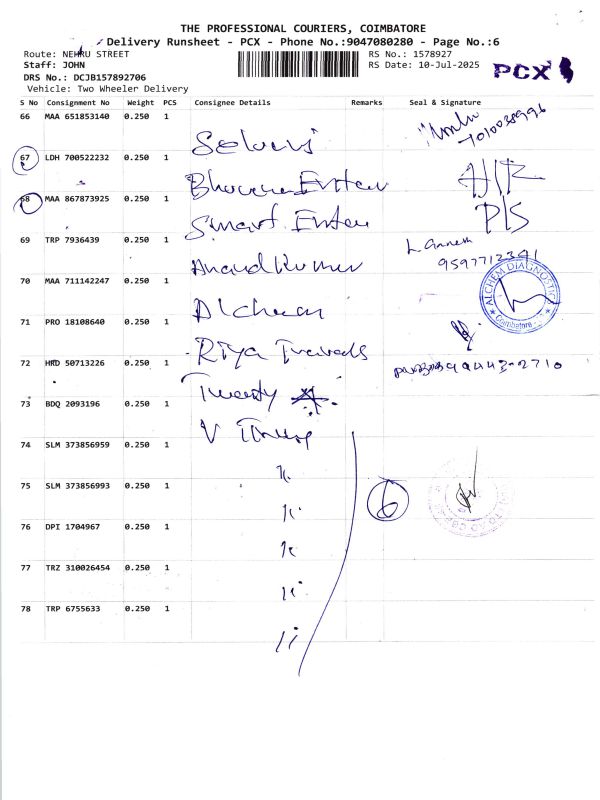 THE PROFESSIONAL COURIERS, COIMBATORE
Delivery Runsheet - PCX - Phone No.:9047080280 - Page No.:6
Route: NEHRU STREET
RS No.: 1578927
Staff: JOHN
RS Date: 10-Jul-2025
PCX
DRS No.: DCJB157892706
Vehicle: Two Wheeler Delivery
S No Consignment No Weight PCS Consignee Details Remarks Seal & Signature
66 MAA 651853140 0.250 1
Selvi
67 LDH 700522232 0.250 1
Enter
68 MAA 867873925 0.250 1
Smart Enter
P/S
69 TRP 7936439 0.250 1
L Ganesh
9597712391
Anand Kumar
70 MAA 711142247 0.250 1
ALCHEM DIAGNOSTICS
Coimbatore
71 PRO 18108640 0.250 1
Riya Travels
72 HRD 50713226 0.250 1
Tweety
73 BDQ 2093196 0.250 1
V
74 SLM 373856959 0.250 1
75 SLM 373856993 0.250 1
6
76 DPI 1704967 0.250 1
77 TRZ 310026454 0.250 1
78 TRP 6755633 0.250 1